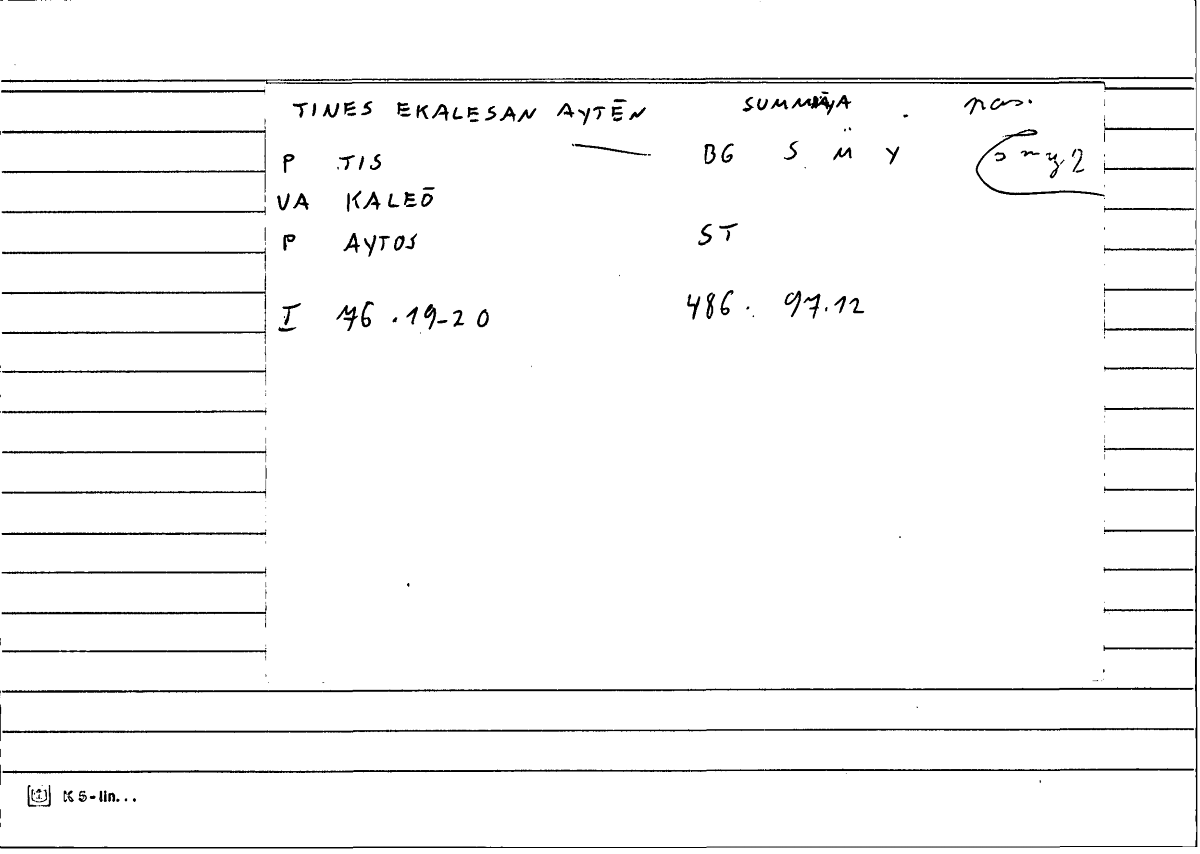 TINES EKALESAN AYTĒN SUMMIĀYA . pas.
P TIS BG S M̈ Y smy2
VA KALEŌ
P AYTOS ST
I 76.19-20 486. 97.12
K 5-lin...